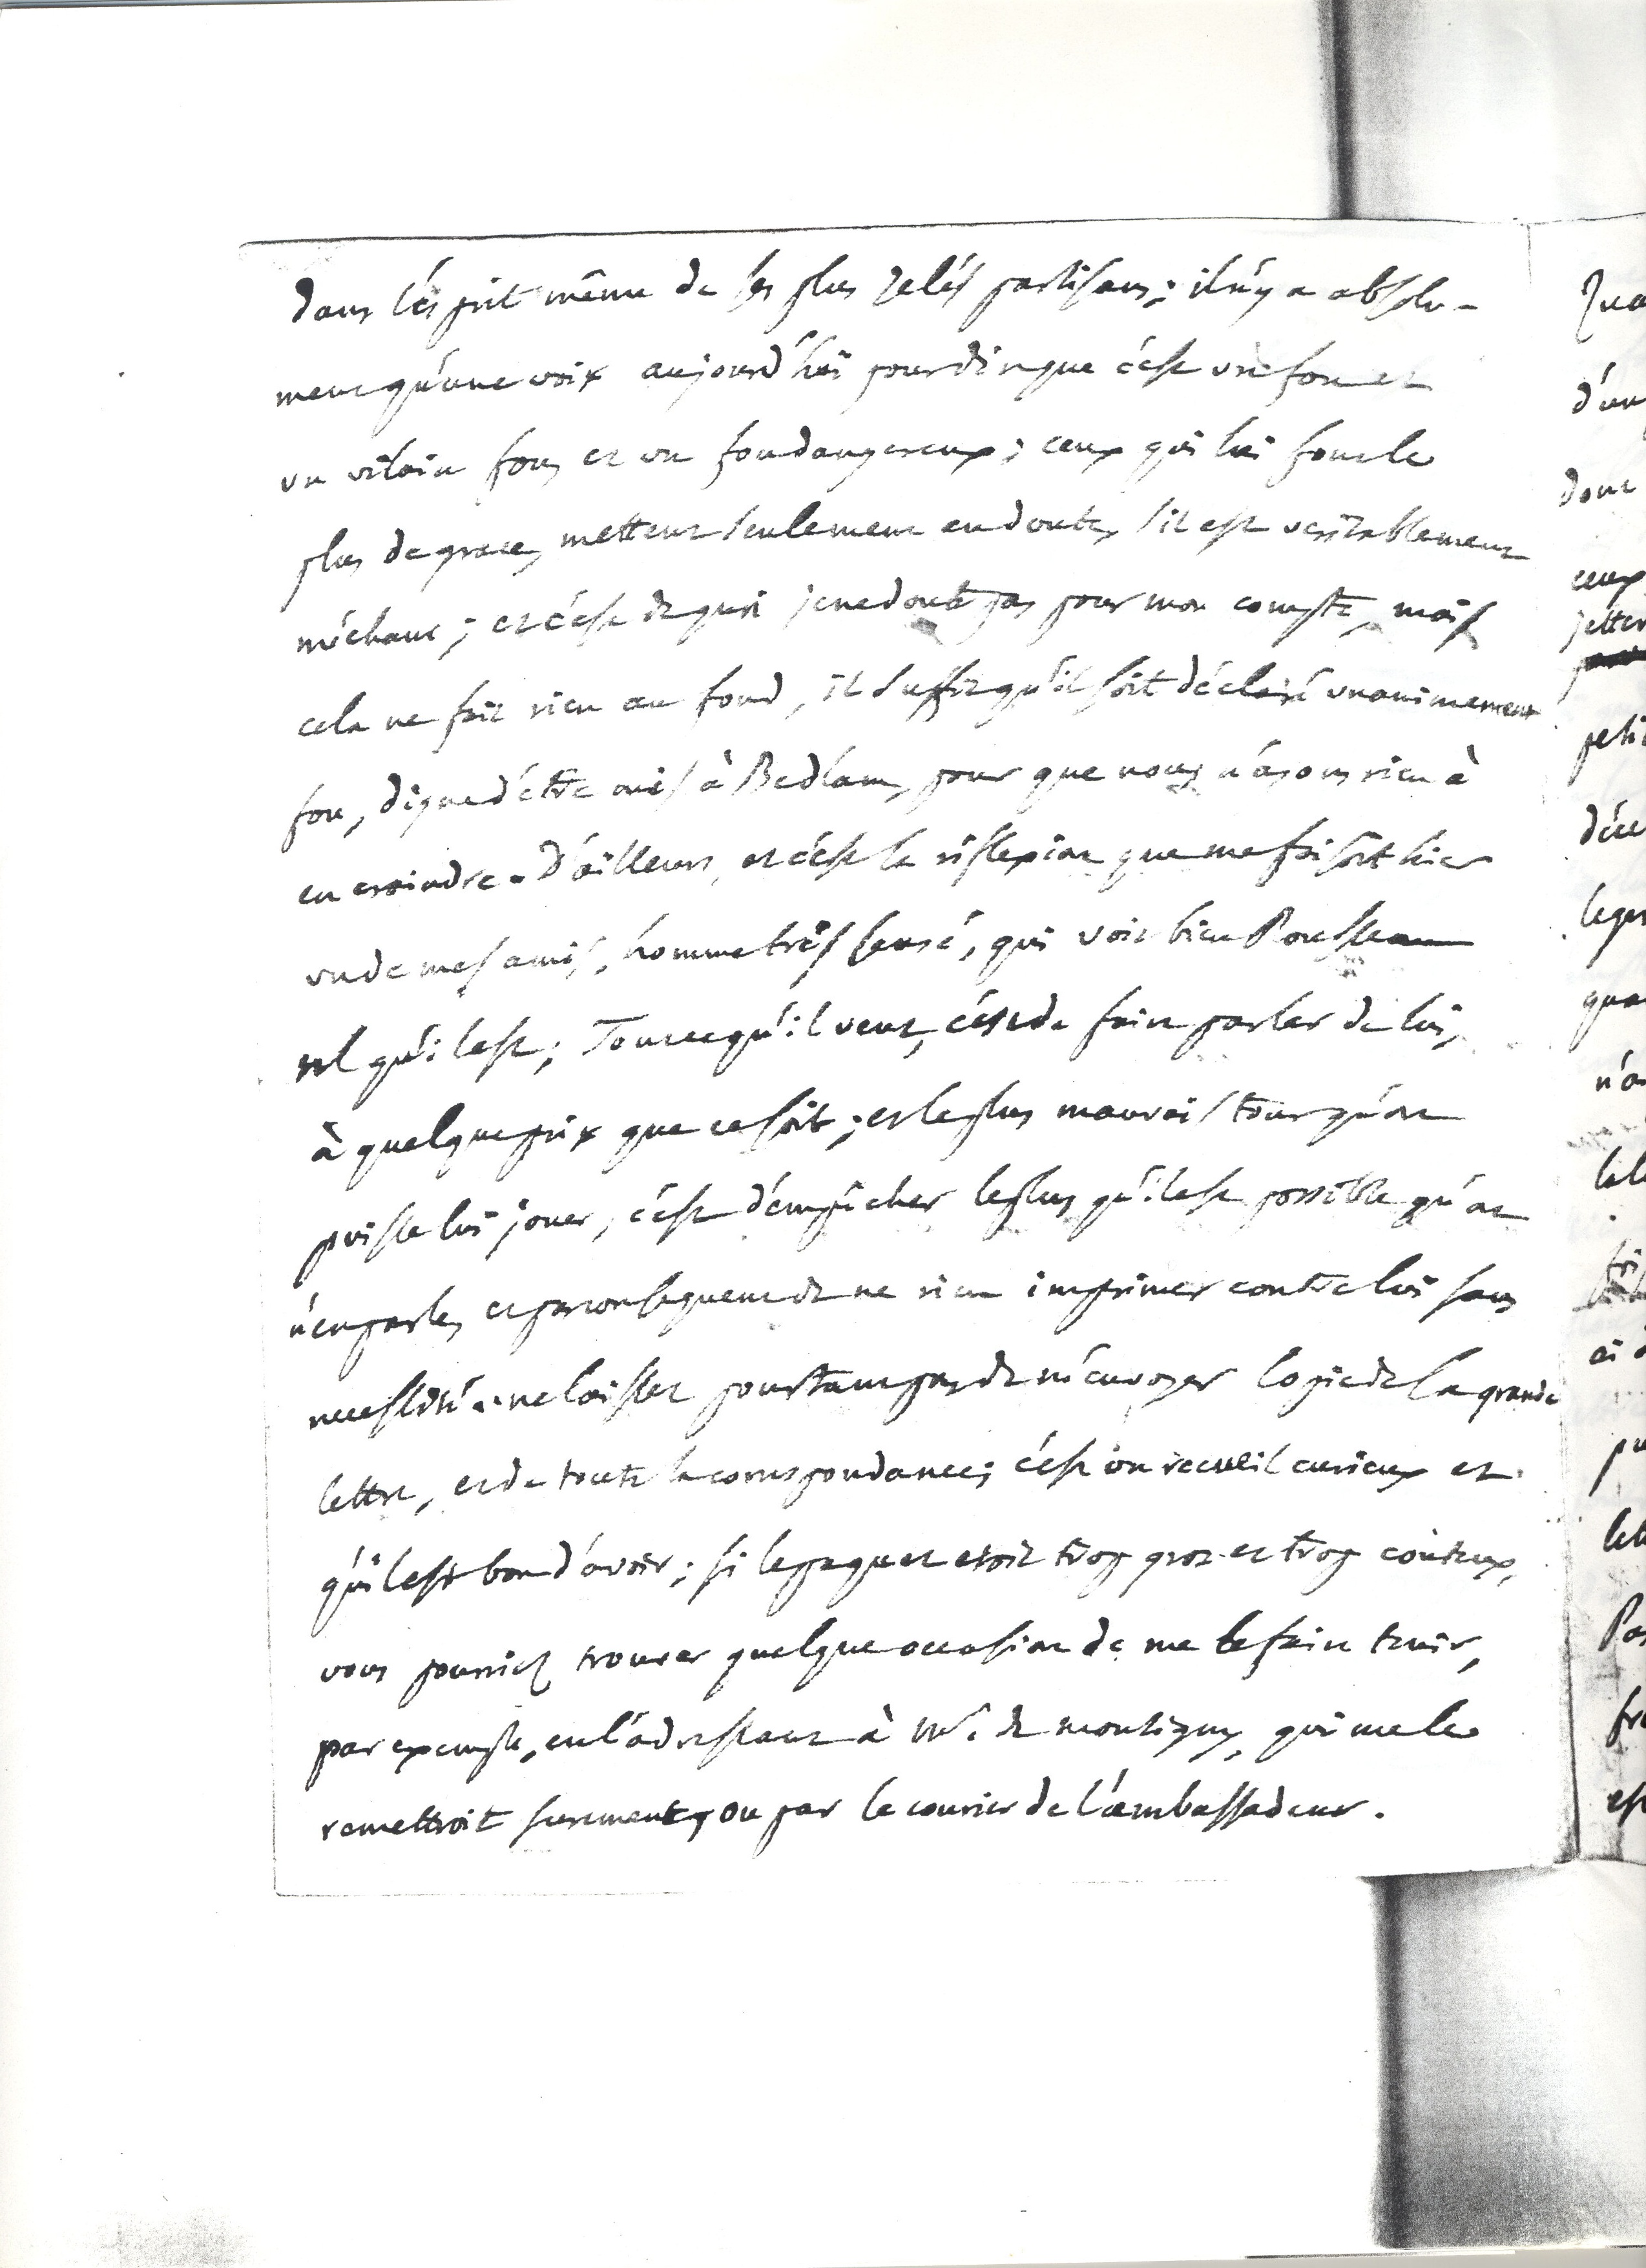 dans l'ésprit même de ses plus zelés partisans; il n'y a absolu-
ment qu'une voix aujourd'hui pour dire que c'est un fou et
un vilain fou, et un fou dangereux; ceux qui lui font le
plus de grace, mettent seulement en doute, s'il est veritablement
méchant; et c'est de quoi je ne doute pas pour mon compte, mais
cela ne fait rien au fond, il suffit qu'il soit déclaré unanimement
fou, digne d'être mis à Bedlam, pour que nous n'ayons rien à
en craindre. D'ailleurs, et c'est la réflexion que me faisoit hier
un de mes amis, homme très sensé, qui voit bien Rousseau
tel qu'il est; Tout ce qu'il veut, c'est de faire parler de lui,
à quelque prix que ce soit; et le plus mauvais tour qu'on
puisse lui jouer, c'est d'empêcher le plus qu'il est possible qu'on
n'en parle, et par consequent de ne rien imprimer contre lui sans
necessité. ne laissez pourtant pas de m'envoyer copie de la grande
lettre, et de toute la correspondance; c'est un recueil curieux et
qu'il est bon d'avoir; si le paquet etoit trop gros et trop couteux,
vous pourriez trouver quelque occasion de me le faire tenir,
par exemple, en l'adressant à Mr. de Montigny, qui me le
remettroit surement, ou par le courier de l'ambassadeur.
Qua
d'un
dont
ceux
jetter
peti
déce
leger
qua
n'a
lel
ai
pu
let
fra
est